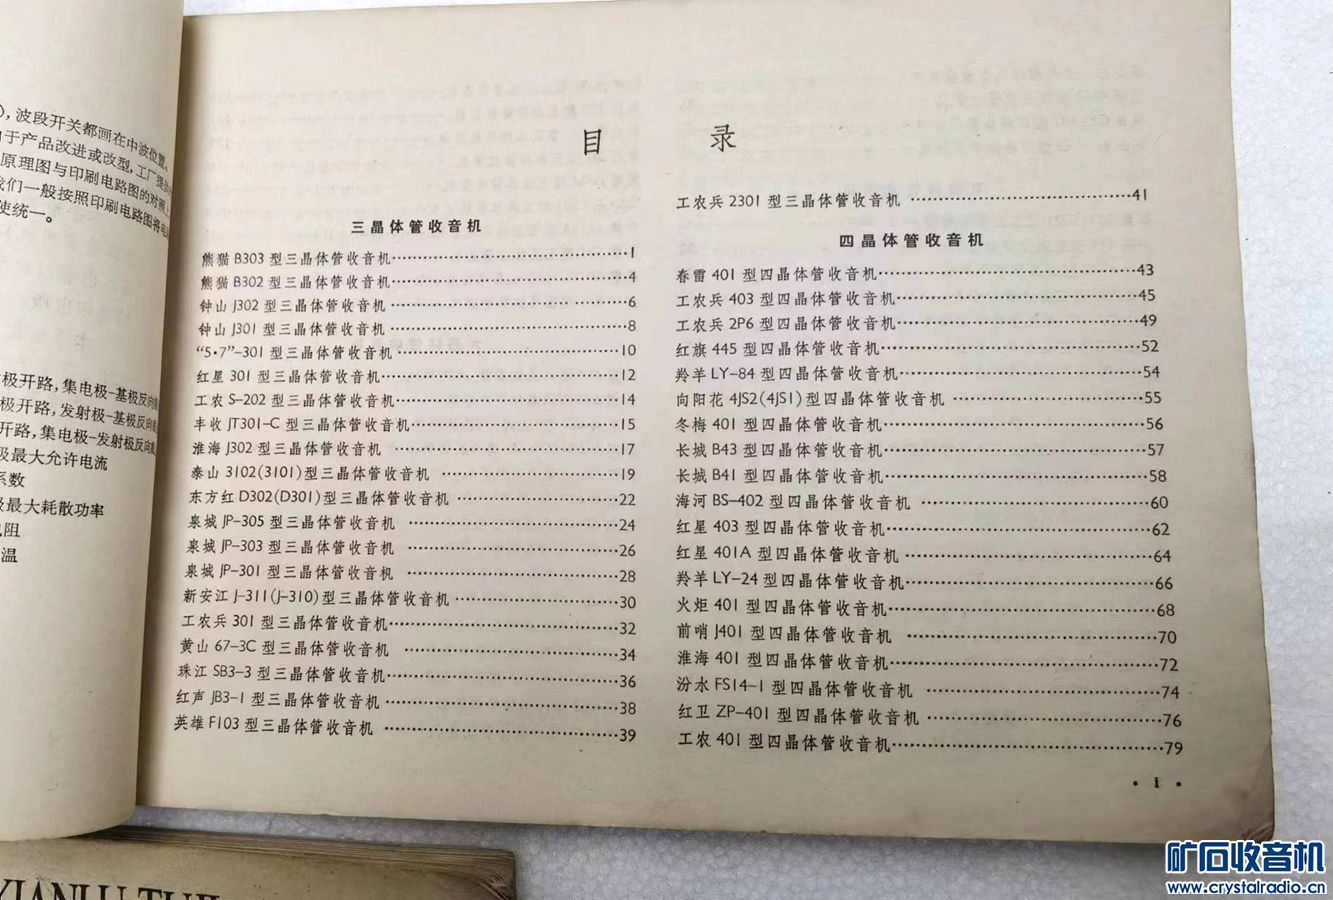 ),波段开关都画在中波位置。
于产品改进或改型,工厂提供
原理图与印刷电路图的对照上
我们一般按照印刷电路图将电
使统一。
极开路,集电极-基极反向
极开路,发射极-基极反向
开路,集电极-发射极反向
极最大允许电流
系数
极最大耗散功率
阻
温
目 录
三晶体管收音机
熊猫 B303 型三晶体管收音机……1
熊猫 B302 型三晶体管收音机……4
钟山 J302 型三晶体管收音机……6
钟山 J301 型三晶体管收音机……8
“5·7”-301 型三晶体管收音机……10
红星 301 型三晶体管收音机……12
工农 S-202 型三晶体管收音机……14
丰收 JT301-C 型三晶体管收音机……15
淮海 J302 型三晶体管收音机……17
泰山 3102(3101)型三晶体管收音机……19
东方红 D302(D301)型三晶体管收音机……22
泉城 JP-305 型三晶体管收音机……24
泉城 JP-303 型三晶体管收音机……26
泉城 JP-301 型三晶体管收音机……28
新安江 J-311(J-310)型三晶体管收音机……30
工农兵 301 型三晶体管收音机……32
黄山 67-3C 型三晶体管收音机……34
珠江 SB3-3 型三晶体管收音机……36
红声 JB3-1 型三晶体管收音机……38
英雄 F103 型三晶体管收音机……39
工农兵 2301 型三晶体管收音机……41
四晶体管收音机
春雷 401 型四晶体管收音机……43
工农兵 403 型四晶体管收音机……45
工农兵 2P6 型四晶体管收音机……49
红旗 445 型四晶体管收音机……52
羚羊 LY-84 型四晶体管收音机……54
向阳花 4JS2(4JS1)型四晶体管收音机……55
冬梅 401 型四晶体管收音机……56
长城 B43 型四晶体管收音机……57
长城 B41 型四晶体管收音机……58
海河 BS-402 型四晶体管收音机……60
红星 403 型四晶体管收音机……62
红星 401A 型四晶体管收音机……64
羚羊 LY-24 型四晶体管收音机……66
火炬 401 型四晶体管收音机……68
前哨 J401 型四晶体管收音机……70
淮海 401 型四晶体管收音机……72
汾水 FS14-1 型四晶体管收音机……74
红卫 ZP-401 型四晶体管收音机……76
工农 401 型四晶体管收音机……79
· i ·
矿石收音机
www.crystalradio.cn